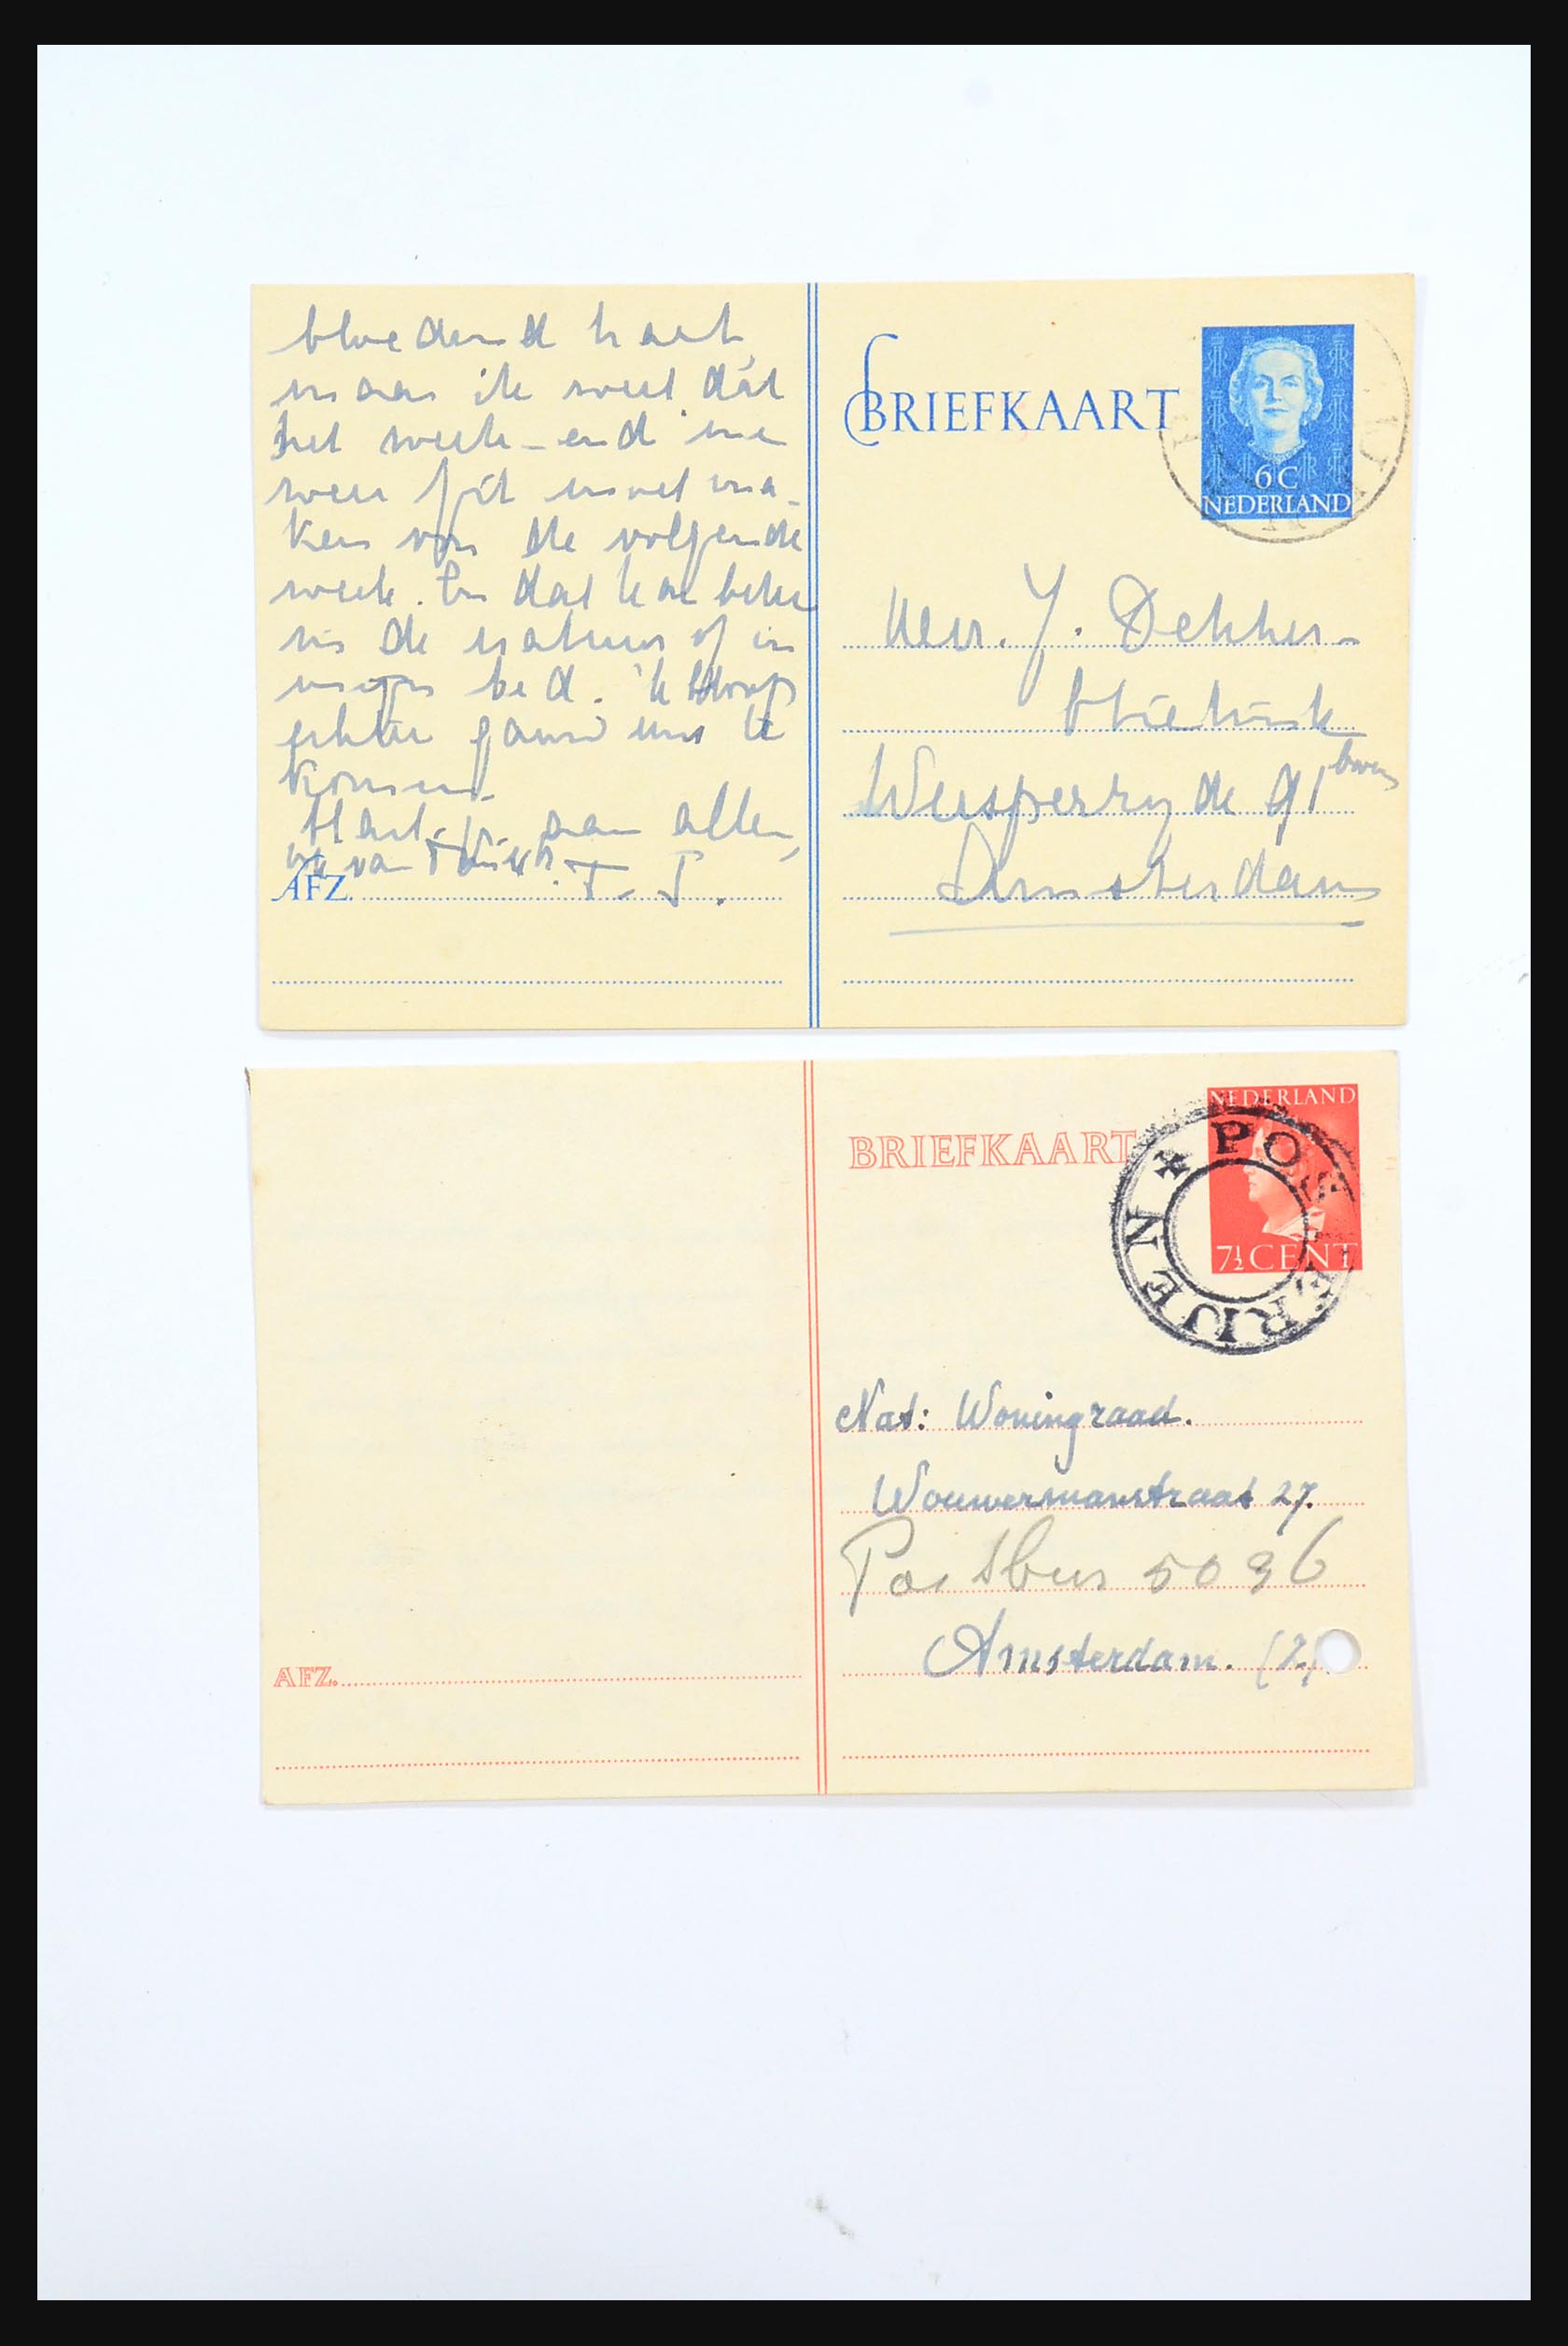 bloedend hart,
maar ik weet dat
het week-end me
weer fit moet ma-
ken voor de volgende
week. En dat kan beter
in de natuur of in
mijn bed. 'k hoop
echter gauw eens te
komen.
Hart. gr. aan allen,
van
AFZ. T. J.
BRIEFKAART
6 C
NEDERLAND
Mevr. J. Dekker-
Weesperzijde 91 boven
Amsterdam
BRIEFKAART
NEDERLAND
7½ CENT
* POSTERIJEN
Nat: Woningraad.
Wouwermanstraat 27.
Postbus 5036
Amsterdam. (Z)
AFZ.